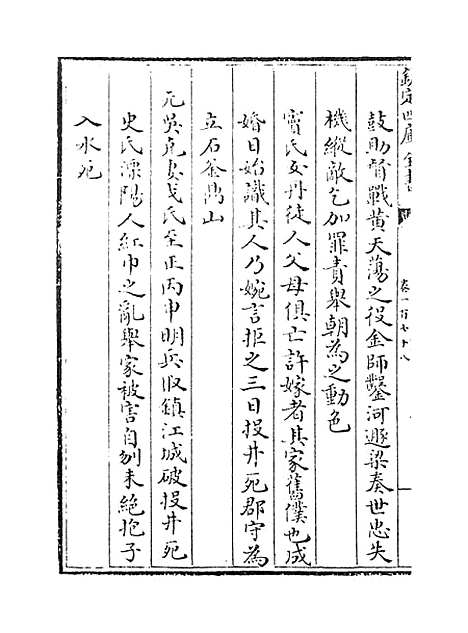 欽定四庫全書
卷一百七十八
鼓助督戰黄天蕩之役金師鑿河遯梁奏世忠失
機縱敵乞加罪責舉朝為之動色
竇氏女丹徒人父母俱亡許嫁者其家舊僕也成
婚日始識其人乃婉言拒之三日投井死郡守為
立石釜鬲山
元吳克妻戈氏至正丙申明兵取鎮江城破投井死
史氏溧陽人紅巾之亂舉家被害自刎未絶抱子
入水死